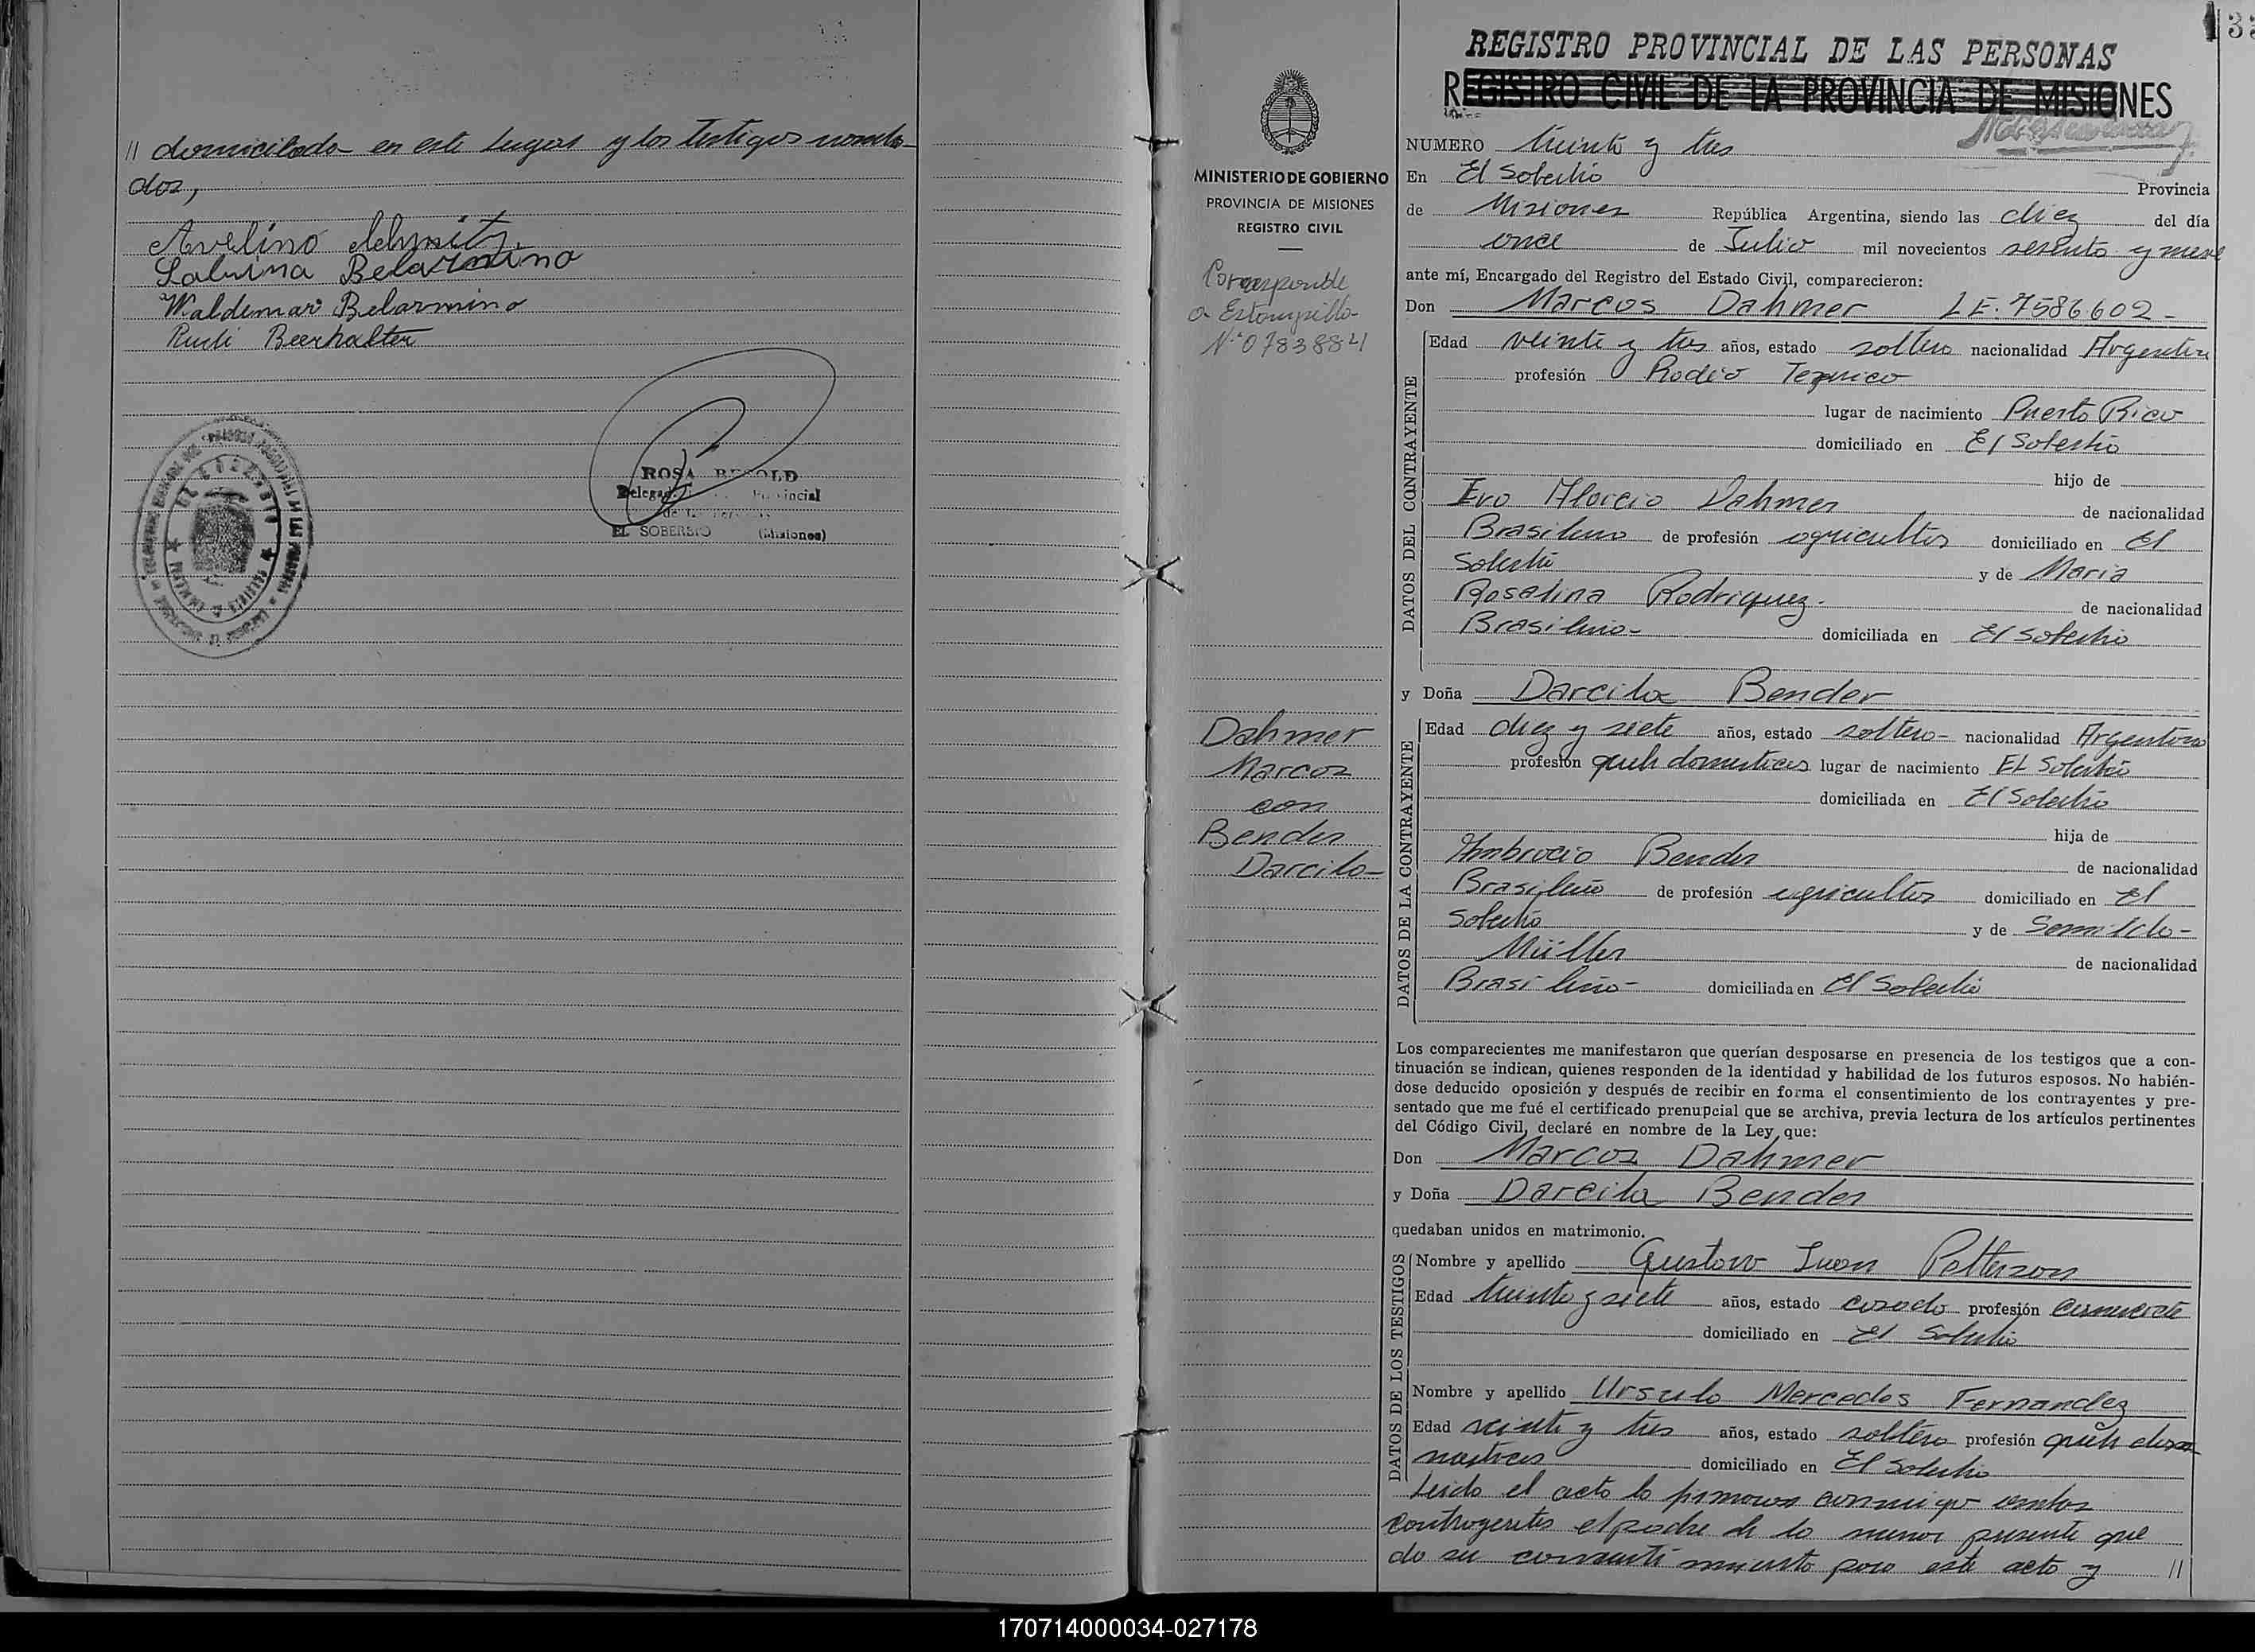 // domiciliado en este lugar y los testigos nombra-
dos,
Avelino Schmitz.
Sabrina Belarmino
Waldemar Belarmino
Rudi Beerhalter
ROSA
Provincial
EL SOBERBIO (Misiones)
REGISTRO PROVINCIAL DE LAS PERSONAS
REGISTRO CIVIL DE LA PROVINCIA DE MISIONES
MINISTERIO DE GOBIERNO
PROVINCIA DE MISIONES
REGISTRO CIVIL
Corresponde
a Estampilla
N.º 0783884
Dahmer
Marcos
con
Bender
Darcila-
NUMERO treinta y tres
En El Soberbio Provincia
de Misiones República Argentina, siendo las diez del día
once de Julio mil novecientos sesenta y nueve
ante mí, Encargado del Registro del Estado Civil, comparecieron:
Don Marcos Dahmer LE. 7586602-
DATOS DEL CONTRAYENTE
Edad veinte y tres años, estado soltero nacionalidad Argentino
profesión Radio Tecnico
lugar de nacimiento Puerto Rico
domiciliado en El Soberbio
hijo de
Ivo Dahmer de nacionalidad
Brasileno de profesión agricultor domiciliado en El
Soberbio y de Maria
Rosalina Rodriguez. de nacionalidad
Brasilena- domiciliada en El Soberbio
y Doña Darcila Bender
DATOS DE LA CONTRAYENTE
Edad diez y siete años, estado soltera- nacionalidad Argentina
profesión queh domesticos lugar de nacimiento El Soberbio
domiciliada en El Soberbio
hija de
Ambrocio Bender de nacionalidad
Brasileño de profesión agricultor domiciliado en El
Soberbio y de Semilda-
Müller de nacionalidad
Brasileña- domiciliada en El Soberbio
Los comparecientes me manifestaron que querían desposarse en presencia de los testigos que a con-
tinuación se indican, quienes responden de la identidad y habilidad de los futuros esposos. No habién-
dose deducido oposición y después de recibir en forma el consentimiento de los contrayentes y pre-
sentado que me fué el certificado prenupcial que se archiva, previa lectura de los artículos pertinentes
del Código Civil, declaré en nombre de la Ley que:
Don Marcos Dahmer
y Doña Darcila Bender
quedaban unidos en matrimonio.
DATOS DE LOS TESTIGOS
Nombre y apellido Gustavo Juan Petterson
Edad treinta y siete años, estado casado profesión comerciante
domiciliado en El Soberbio
Nombre y apellido Ursula Mercedes Fernandez
Edad veinte y tres años, estado soltera profesión queh dom
mesticos domiciliado en El Soberbio
Leida el acta la firmaron conmigo ambos
contrayentes el padre de la menor presente que
da su consentimiento para este acto y //
170714000034-027178